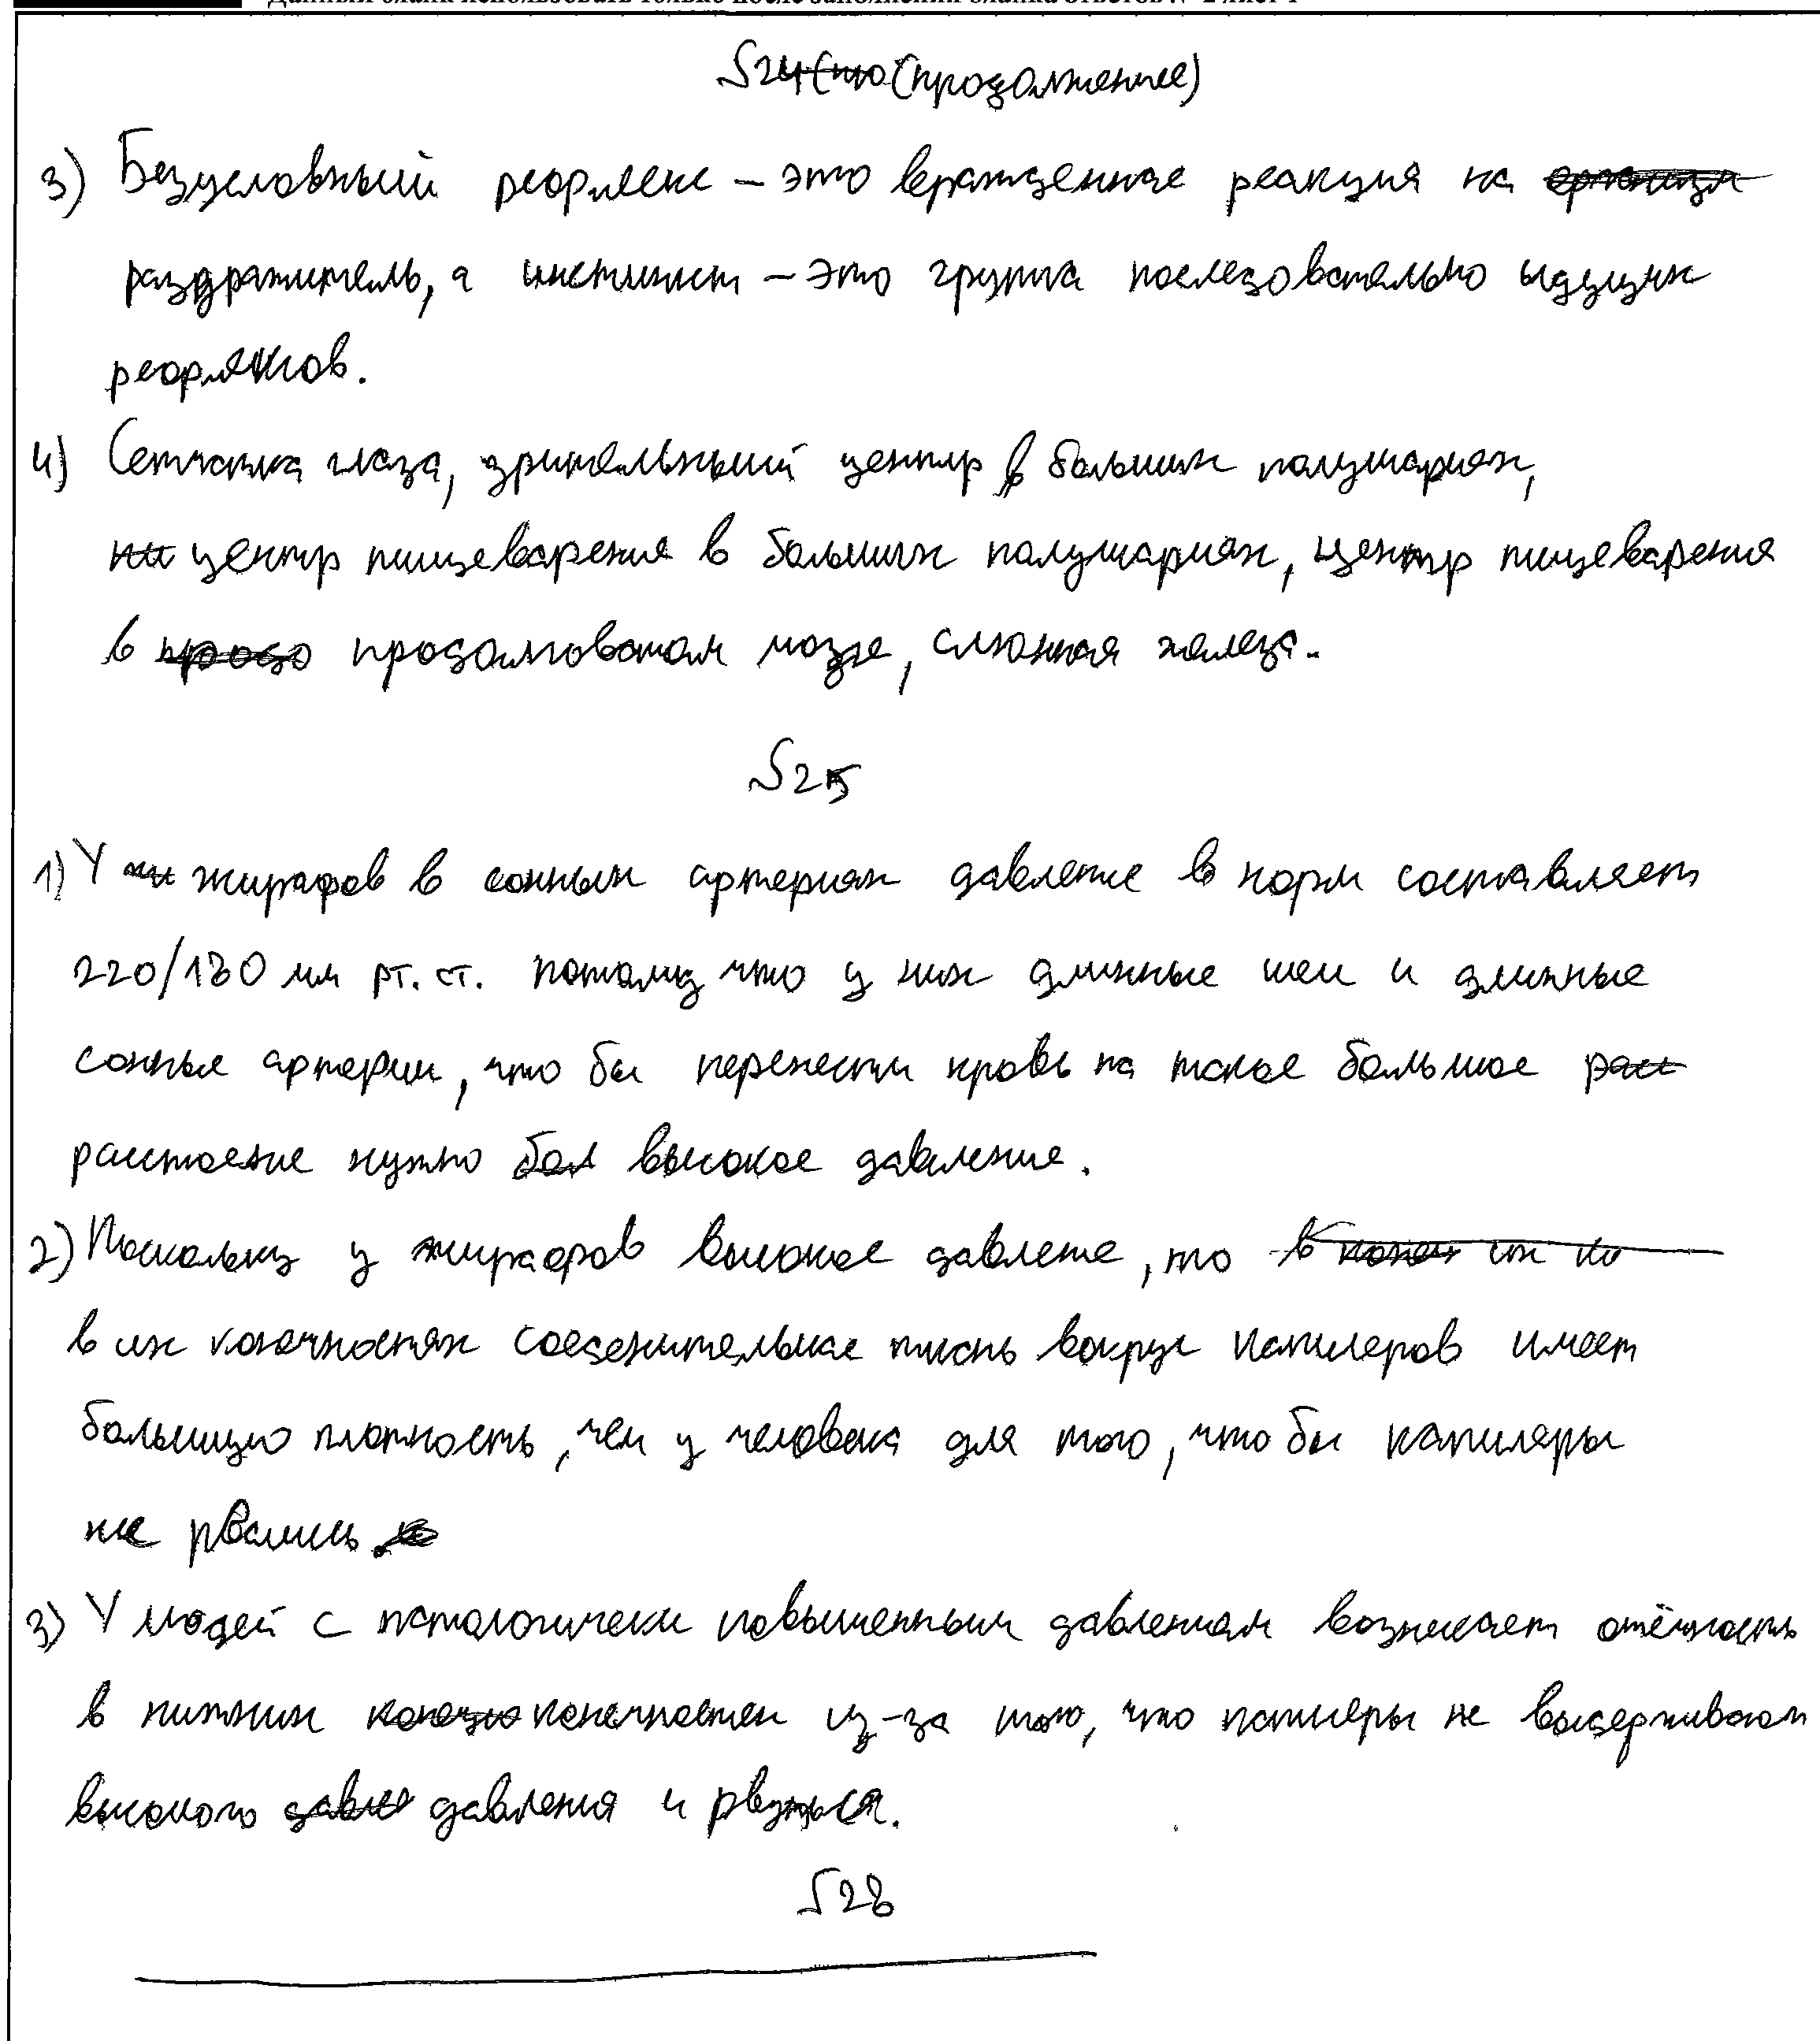 Данный бланк использовать только после заполнения бланка ответов № 2 лист 1
S24 (продолжение)
3) Безусловный рефлекс – это врожденное реакция на
раздражитель, а инстинкт – это группа последовательно идущих
рефлексов.
4) Сетчатка глаза, зрительный центр в больших полушариях,
центр пищеварения в больших полушариях, центр пищеварения
в продолговатом мозге, слюнная железа.
S25
1) У жирафов в сонных артериях давление в норм составляет
220/180 мм рт. ст. потому что у них длинные шеи и длинные
сонные артерии, что бы перенести кровь на такое большое
расстоение нужно высокое давление.
2) Поскольку у жирафов высокое давление, то
в их конечностях соеденительная ткань вокруг капилеров имеет
большую плотность, чем у человека для того, что бы капиляры
не рвались.
3) У людей с патологически повышенным давлением возникает отёчность
в нижних конечностях из-за того, что капилеры не выдерживают
высокого давления и рвуться.
S28